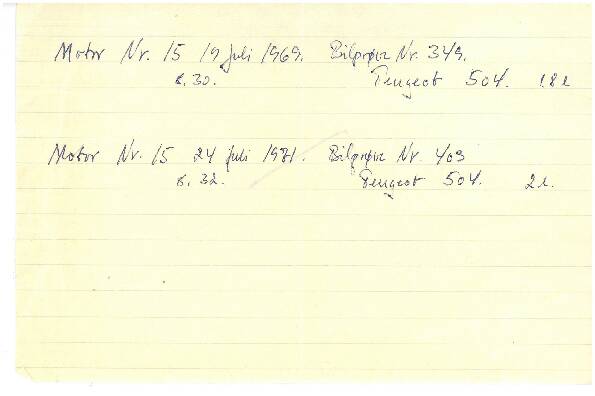 Motor Nr. 15 19 Juli 1969. Bilprøve Nr. 349.
s. 30. Peugeot 504. 1.8 l
Motor Nr. 15 24 Juli 1971. Bilprøve Nr. 409
s. 32. Peugeot 504. 2 l.